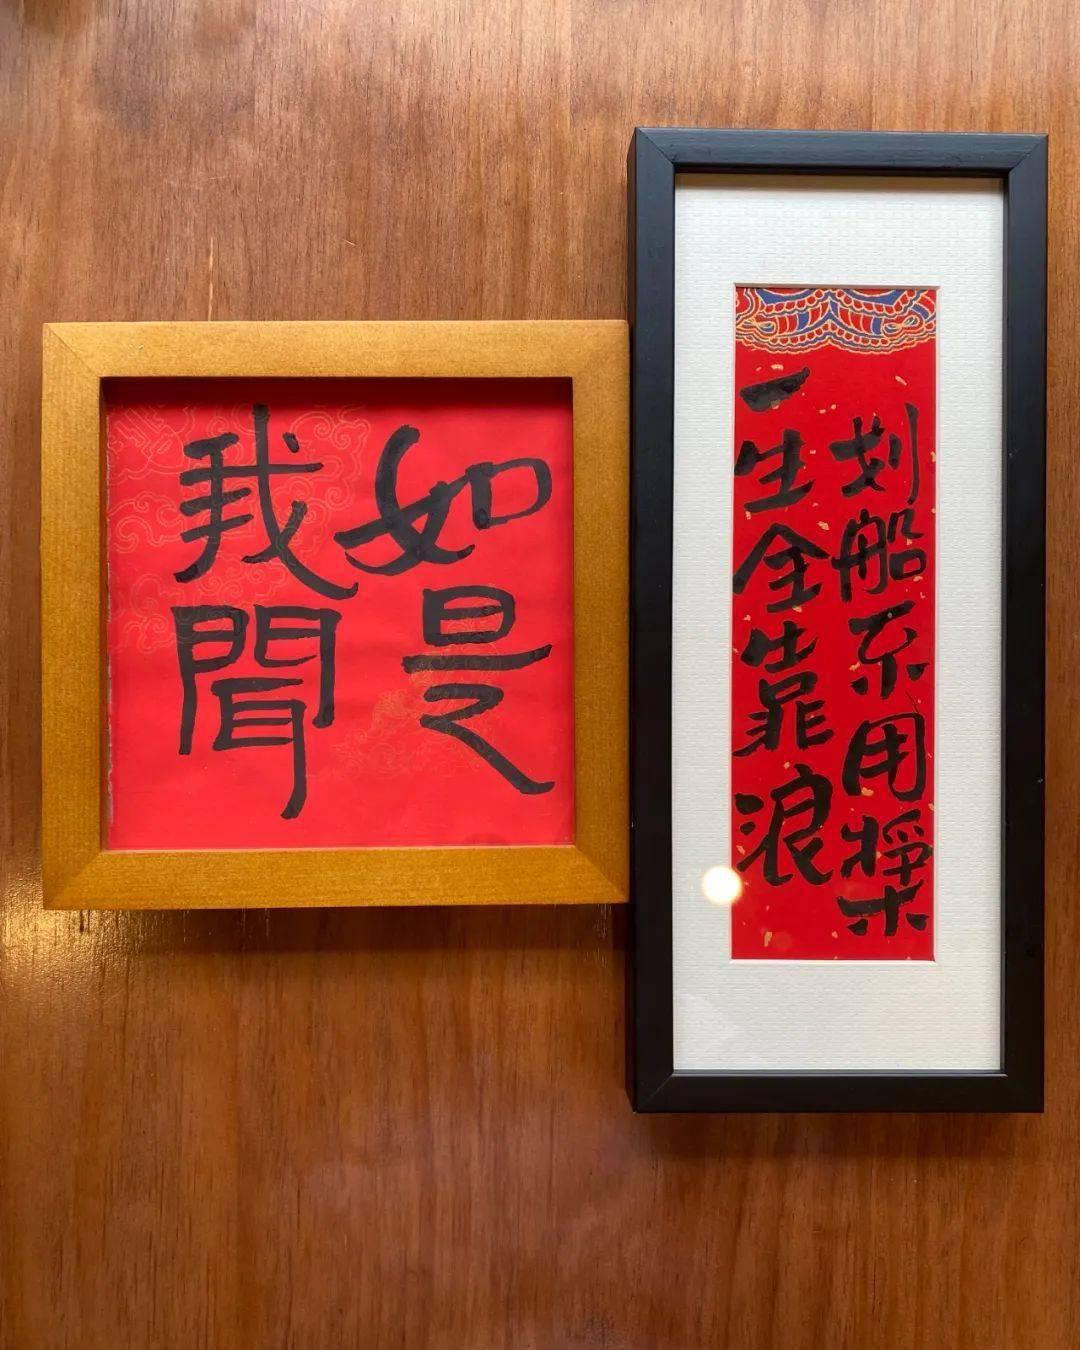 如是
我聞
划船不用槳
一生全靠浪